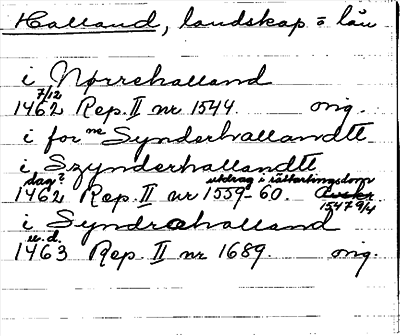 Halland, landskap o län
i Nørrehalland
7/12
1462 Rep. II nr 1544. orig.
i for ne Synderhallandtt
i Szynderhallandtt
dag? utdrag i rättartingsdom
1462 Rep. II nr 1559-60. Avskr.
1547 9/4
i Syndrehalland
u.d.
1463 Rep. II nr 1689. orig.